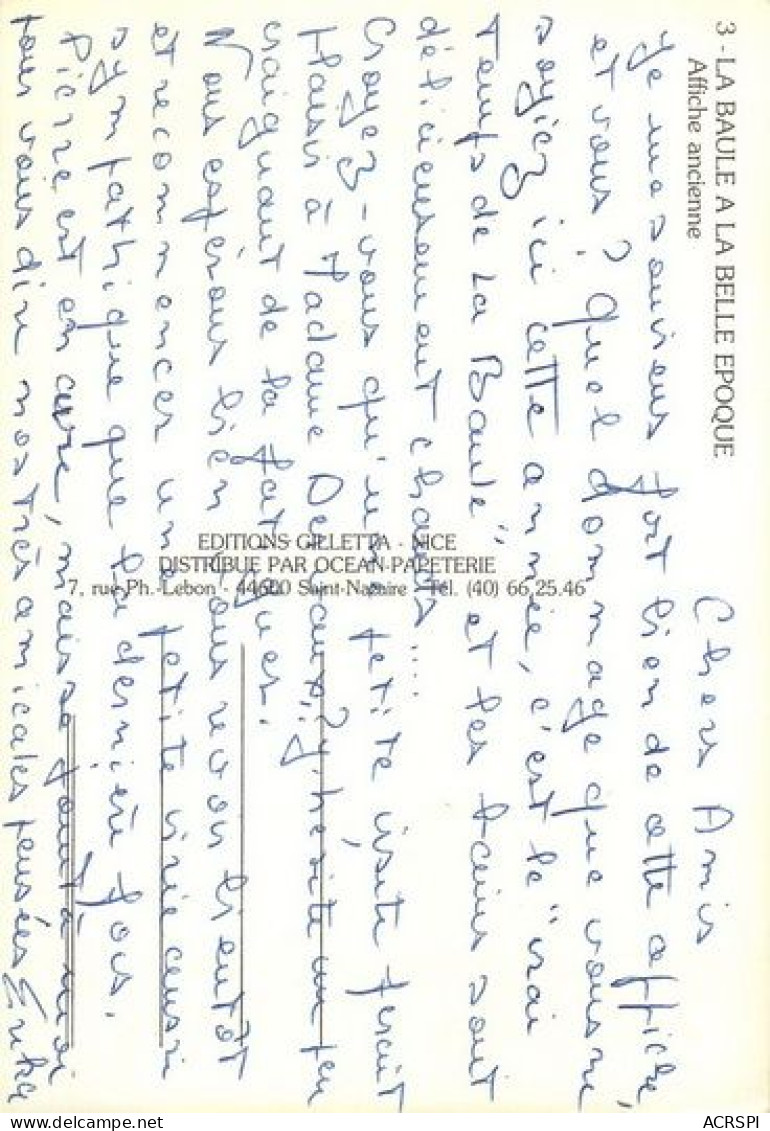 3 - LA BAULE A LA BELLE EPOQUE
Affiche ancienne
Chers Amis
Je me souviens fort bien de cette affiche,
et vous? Quel dommage que vous ne
soyiez ici cette année, c'est le "vrai
temps de La Baule" et les bains sont
délicieusement chauds....
Croyez-vous qu'une petite visite ferait
plaisir à Madame ? J'hésite un peu
craignant de la fatiguer.
Nous espérons bien vous revoir bientôt
et recommencer une petite virée aussi
sympathique que la dernière fois.
Pierre est en cure, mais se joint à moi
pour vous dire nos très amicales pensées Erika
EDITIONS GILLETTA - NICE
DISTRIBUE PAR OCEAN-PAPETERIE
7, rue Ph.-Lebon - 44600 Saint-Nazaire - Tél. (40) 66.25.46
ACRSPI